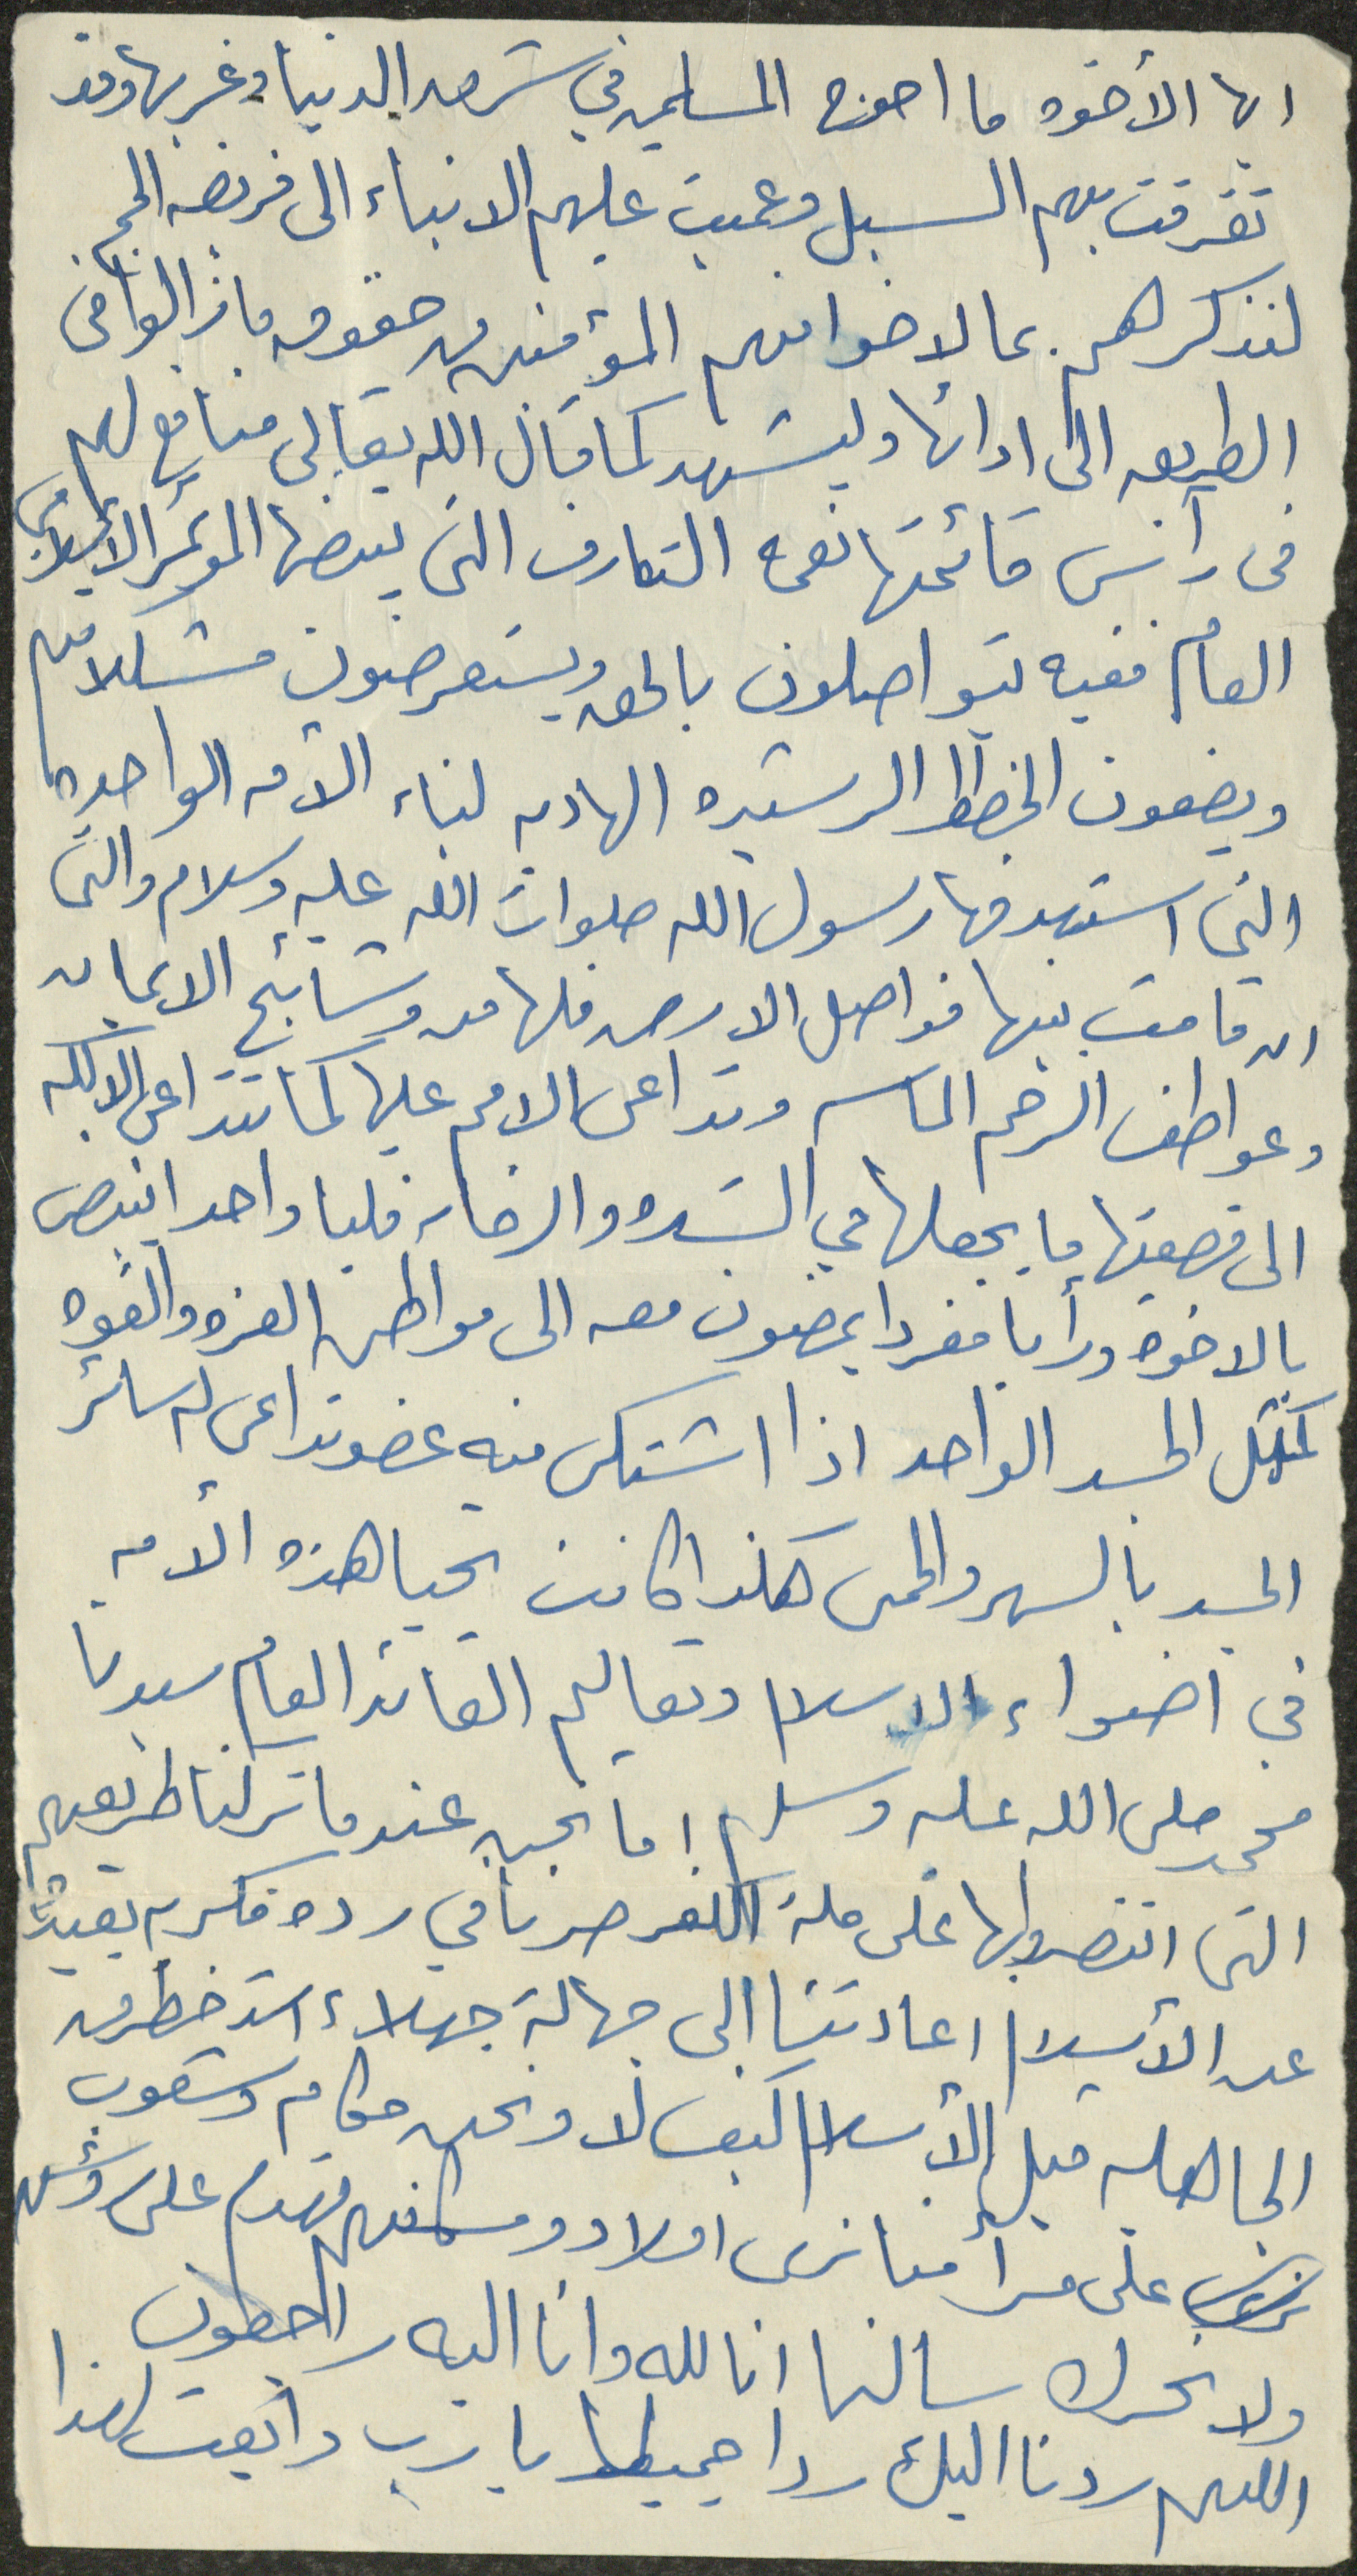 ايها الأخوه ما احوج المسلمين في شرق الدنيا وغربها وقد
تفرقت بهم السبل وعميت عليهم الانباء الى فريضه الحج
لتذكرهم بما لاخوانهم المؤمنين من حقوق مازالوا في
الطريق الى ادائها وليشهد كما قال الله تعالى منافع لهم
في رأس قائمتها نعمه التعارف التي ينبض بها المؤتمر الأسلامي
العام ففيه يتواصلون بالحق ويستعرضون مشكلاتهم
ويضعون الخطط الرشيده الهاديه لبناء الأمه الواحده
التي استهدفها رسول الله صلوات الله عليه وسلام والتي
ان قامت بينها فواصل الارض فلها من وشائج الايمان
وعواطف الرحم الماسه وتداعى الامم عليها كما تتداعى الاكله
الى قصعتها ما يجعلها في الشده والرخاء قلبا واحدا ينبض
بالاخوه ورأيا مفردا يمضون معه الى مواطن العزه والقوه
كمثل الجسد الواحد اذا اشتكى منه عضو تداعى له سائر
الجسد بالسهر والحمى هكذا كانت تحيا هذه الأمه
في اضواء الاسلام وتعاليم القائد العام سيدنا
محمد صلى الله عليه وسلم اما نحن عندما تركنا طريقهم
التى انتصروا بها على ملة الكفر صرنا في رده فكريه بعيدة
عن الأسلام اعادتنا الى جهالة جهلاء اشد خطر من
الجاهليه قبل الأسلام كيف لا ونحن حكام وشعوب
على مرأ منا نرى اولاد ومساكنهم تهدم على رؤسهم
ولا نحرك ساكنا انا لله وانا اليه راجعون
اللهم ردنا اليك ردا جميلا يا رب وابعث لهذا